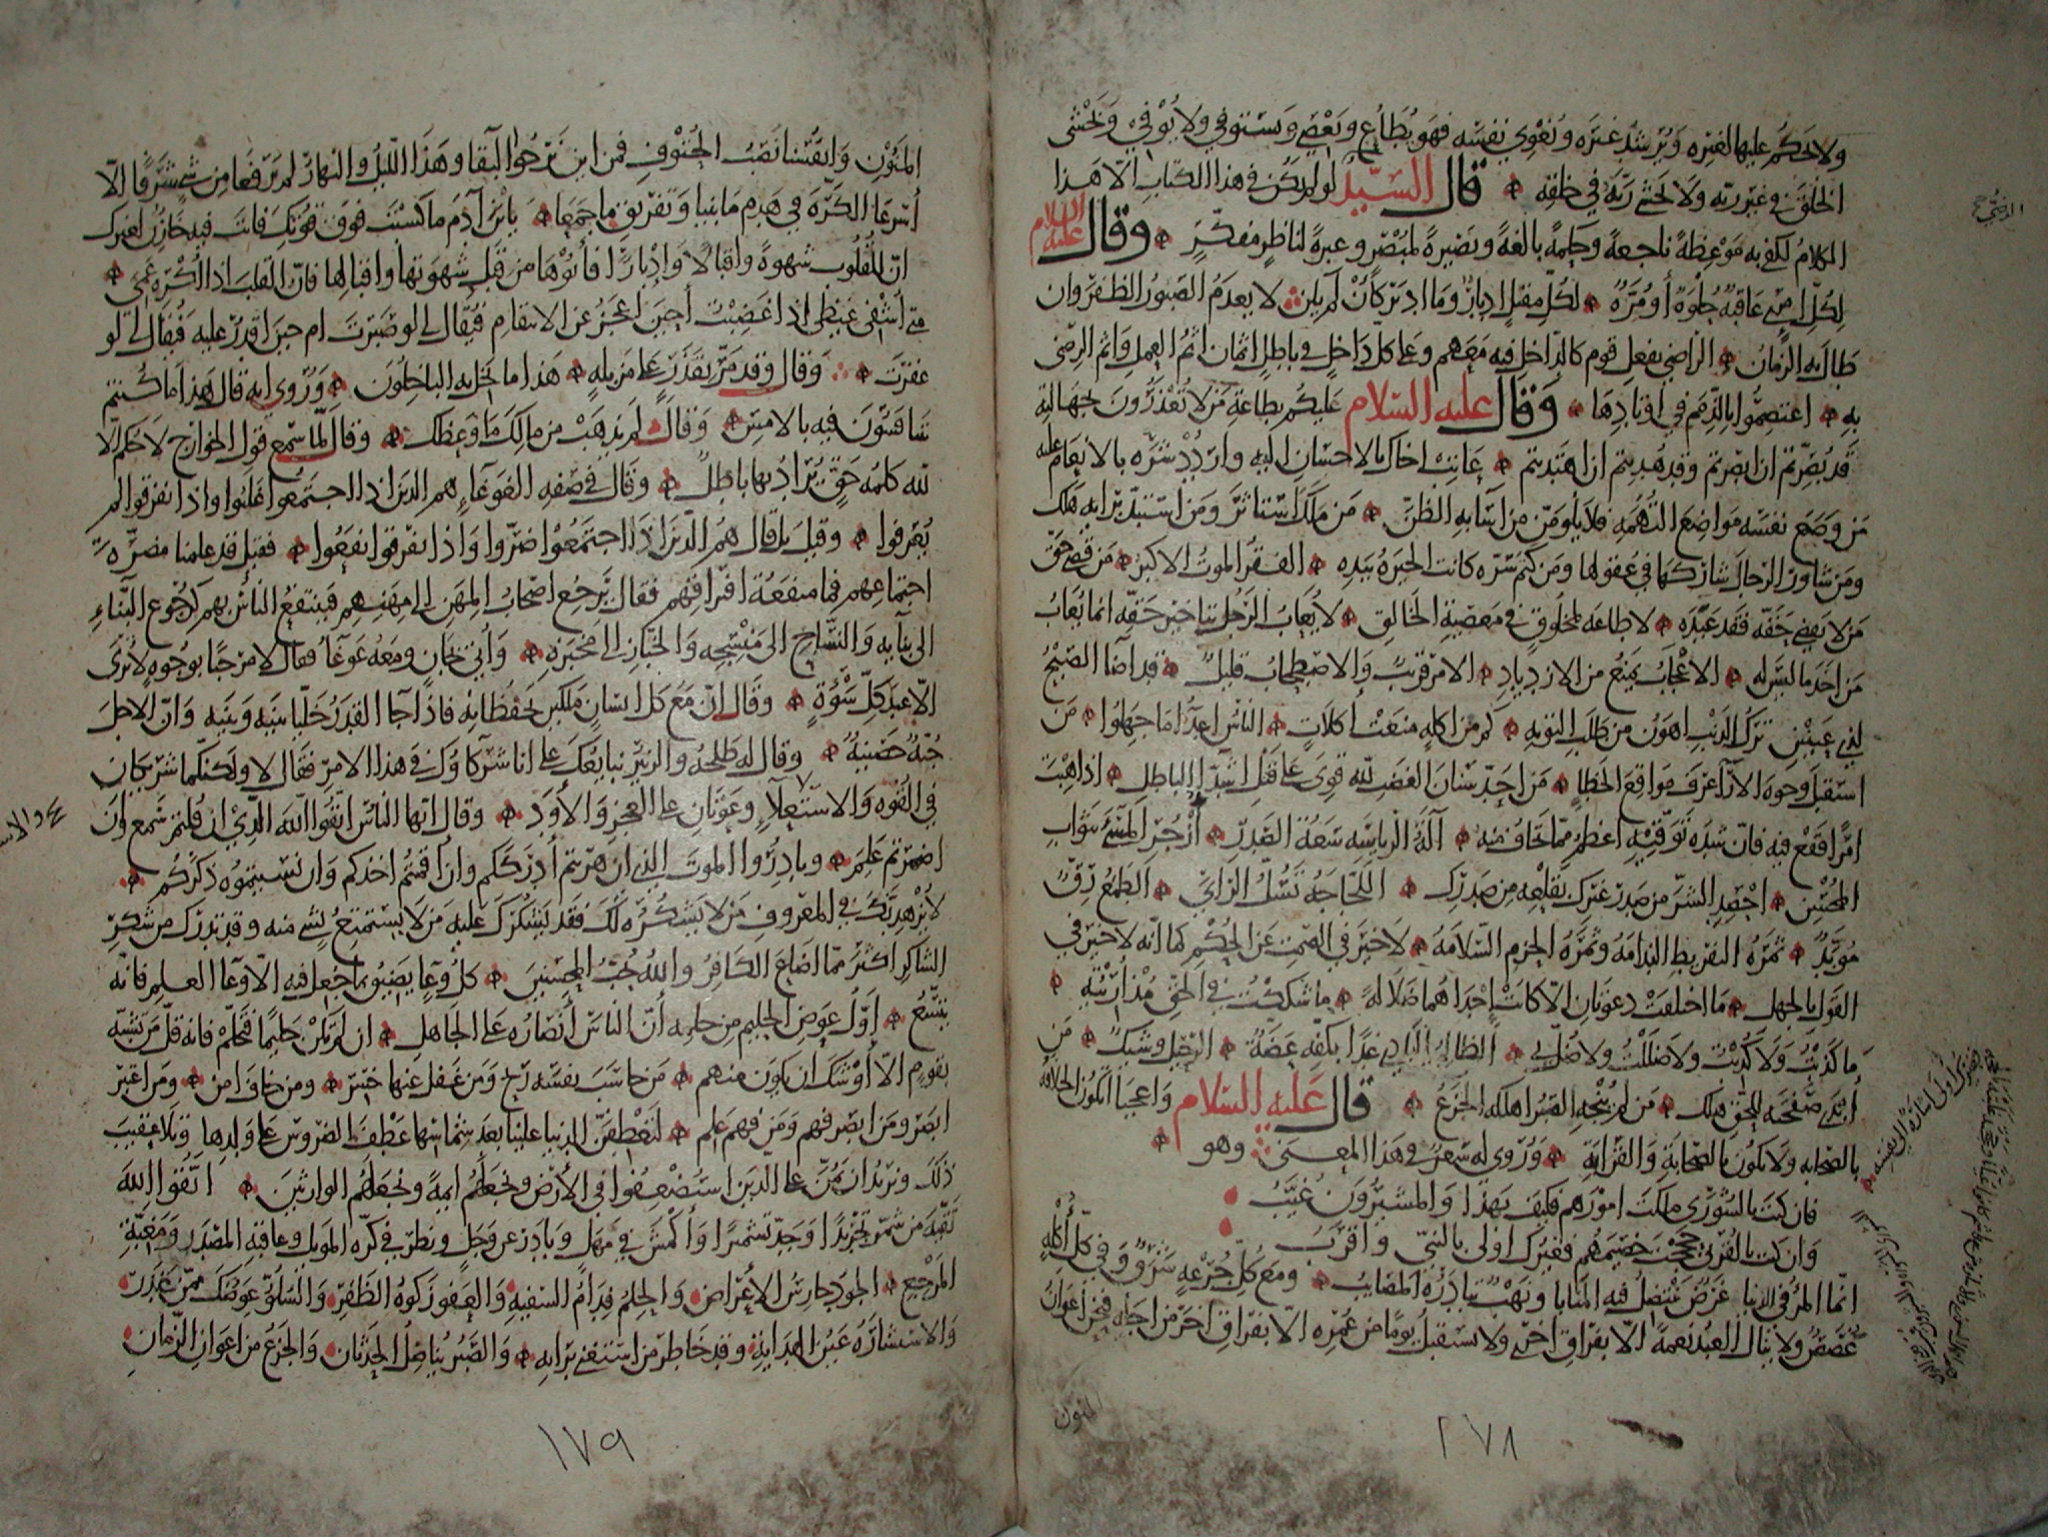 ولا يحكم عليها لغيره ويرشد غيره ويغوي نفسه فهو يطاع ويعصي ويستوفي ولا يوفي ويخشى
الخلق في غير ربه ولا يخشى ربه في خلقه قال السيد لو لم يكن في هذا الكتاب الا هذا
الكلام لكفى به موعظة ناجعة وحكمة بالغة وبصيرة لمبصر وعبرة لناظر مفكر وقال عليه السلام
لكل امرئ عاقبة حلوة أو مرة لكل مقبل ادبار وما ادبر كان لم يكن لا يعدم الصبور الظفر وان
طال به الزمان الراضي بفعل قوم كالداخل فيه معهم وعلى كل داخل في باطل اثمان اثم العمل واثم الرضى
به اعتصموا بالذمم في اوتادها وقال عليه السلام عليكم بطاعة من لا تعذرون بجهالته
قد بصرتم ان ابصرتم وقد هديتم ان اهتديتم عاتب اخاك بالاحسان اليه واردد شره بالانعام عليه
من وضع نفسه مواضع التهمة فلا يلومن من اساء به الظن من ملك استاثر ومن استبد برايه هلك
ومن شاور الرجال شاركها في عقولها ومن كتم سره كانت الخيرة بيده الفقر الموت الاكبر من قضى حق
من لا يقضي حقه فقد عبده لا طاعة لمخلوق في معصية الخالق لا يعاب الرجل بتاخير حقه انما يعاب
من اخذ ما ليس له الاعجاب يمنع من الازدياد الامر قريب والاصطحاب قليل قد اضا الصبح
لذي عينين ترك الذنب اهون من طلب التوبه كم من اكلة منعت اكلات الناس اعدا ما جهلوا من
استقبل وجوه الآرا عرف مواقع الخطا من احد سنان الغضب لله قوي على قتل اشدا الباطل اذا هبت
امرا فقع فيه فان شدة توقيه اعظم مما تخاف منه آلة الرياسه سعة الصدر أزجر المسيء بثواب
المحسن احصد الشر من صدر غيرك بقلعه من صدرك اللجاجة تسل الراي الطمع رق
مؤبد ثمرة التفريط الندامة وثمرة الحزم السلامة لا خير في الصمت عن الحكم كما انه لا خير في
القول بالجهل ما اختلفت دعوتان الا كانت إحداهما ضلالة ما شككت في الحق مذ أريته
ما كذبت ولا كذبت ولا ضللت ولا ضل بي الظالم البادي غدا بكفه عضة الرحيل وشيك من
أبدى صفحته للحق هلك من لم ينجه الصبر اهلكه الجزع قال عليه السلام واعجبا اتكون الخلافة
بالصحابه ولا تكون بالصحابة والقرابة وروي له شعر في هذا المعنى وهو
فان كنت بالشورى ملكت امورهم فكيف بهذا والمشيرون غيب
وان كنت بالقربى حججت خصيمهم فغيرك اولى بالنبي واقرب
انما المرء في الدنيا غرض تنتضل فيه المنايا ونهب تبادره المصايب ومع كل جرعة شرق وفي كل أكلة
غصص ولا ينال العبد نعمة الا بفراق اخرى ولا يستقبل يوما من عمره الا بفراق اخر من اجله فنحن أعوان
المنون
٢٧٨
المنون وانفسنا نصب الحتوف فمن اين نرجوا البقا وهذا الليل والنهار لم يرفعا من شيء شرفا الا
أسرعا الكرة في هدم ما بنيا وتفريق ما جمعا يا بن آدم ما كسبت فوق قوتك فانت فيه خازن لغيرك
ان للقلوب شهوة واقبالا وادبارا فأتوها من قبل شهوتها واقبالها فان القلب اذا اكره عمي
متى أشفي غيظي اذا غضبت أحين اعجز عن الانتقام فيقال لي لو صبرت ام حين اقدر عليه فيقال لي لو
غفرت وقال وقد مر بقذر على مزبلة هذا ما بخل به الباخلون وروي انه قال هذا ما كنتم
تتنافسون فيه بالامس وقال لم يذهب من مالك ما وعظك وقال لما سمع قول الخوارج لا حكم الا
لله كلمة حق يراد بها باطل وقال في صفة الغوغاء هم الذين اذا اجتمعوا غلبوا واذا تفرقوا لم
يعرفوا وقيل بل قال هم الذين اذا اجتمعوا ضروا واذا تفرقوا نفعوا فقيل قد علمنا مضرة
اجتماعهم فما منفعة افتراقهم فقال يرجع اصحاب المهن الى مهنهم فينتفع الناس بهم كرجوع البناء
الى بنايه والنساج الى منسجه والخباز الى مخبزه وأتي بجان ومعه غوغا فقال لا مرحبا بوجوه لا ترى
الا عند كل سوءة وقال ان مع كل انسان ملكين يحفظانه فاذا جا القدر خليا بينه وبينه وان الاجل
جنة حصينة وقال له طلحة والزبير نبايعك على انا شركاؤك في هذا الامر فقال لا ولكنكما شريكان
في القوه والاستعلا وعونان على العجز والأود وقال ايها الناس اتقوا الله الذي ان قلتم سمع وان
اضمرتم علم وبادروا الموت الذي ان هربتم أدرككم وان اقمتم اخذكم وان نسيتموه ذكركم
لا يزهدنك في المعروف من لا يشكره لك فقد يشكرك عليه من لا يستمتع بشي منه وقد تدرك من شكر
الشاكر اكثر مما اضاع الكافر والله يحب المحسنين كل وعا يضيق بما جعل فيه الا وعا العلم فانه
يتسع أول عوض الحليم من حلمه أن الناس أنصاره على الجاهل ان لم تكن حليما فتحلم فانه قل من تشبه
بقوم الا أوشك ان يكون منهم من حاسب نفسه ربح ومن غفل عنها خسر ومن خاف امن ومن اعتبر
ابصر ومن ابصر فهم ومن فهم علم لتعطفن الدنيا علينا بعد شماسها عطف الضروس على ولدها وتلا عقيب
ذلك ونريد ان نمن على الذين استضعفوا في الأرض ونجعلهم ايمة ونجعلهم الوارثين اتقوا الله
تقية من شمر تجريدا وجد تشميرا وأكمش في مهل وبادر عن وجل ونظر في كرة الموئل وعاقبة المصدر ومغبة
المرجع الجود حارس الأعراض والحلم فدام السفيه والعفو زكوة الظفر والسلو عوضك ممن غدر
والاستشارة عين الهداية وقد خاطر من استغنى برايه والصبر يناضل الحدثان والجزع من اعوان الزمان
١٧٩